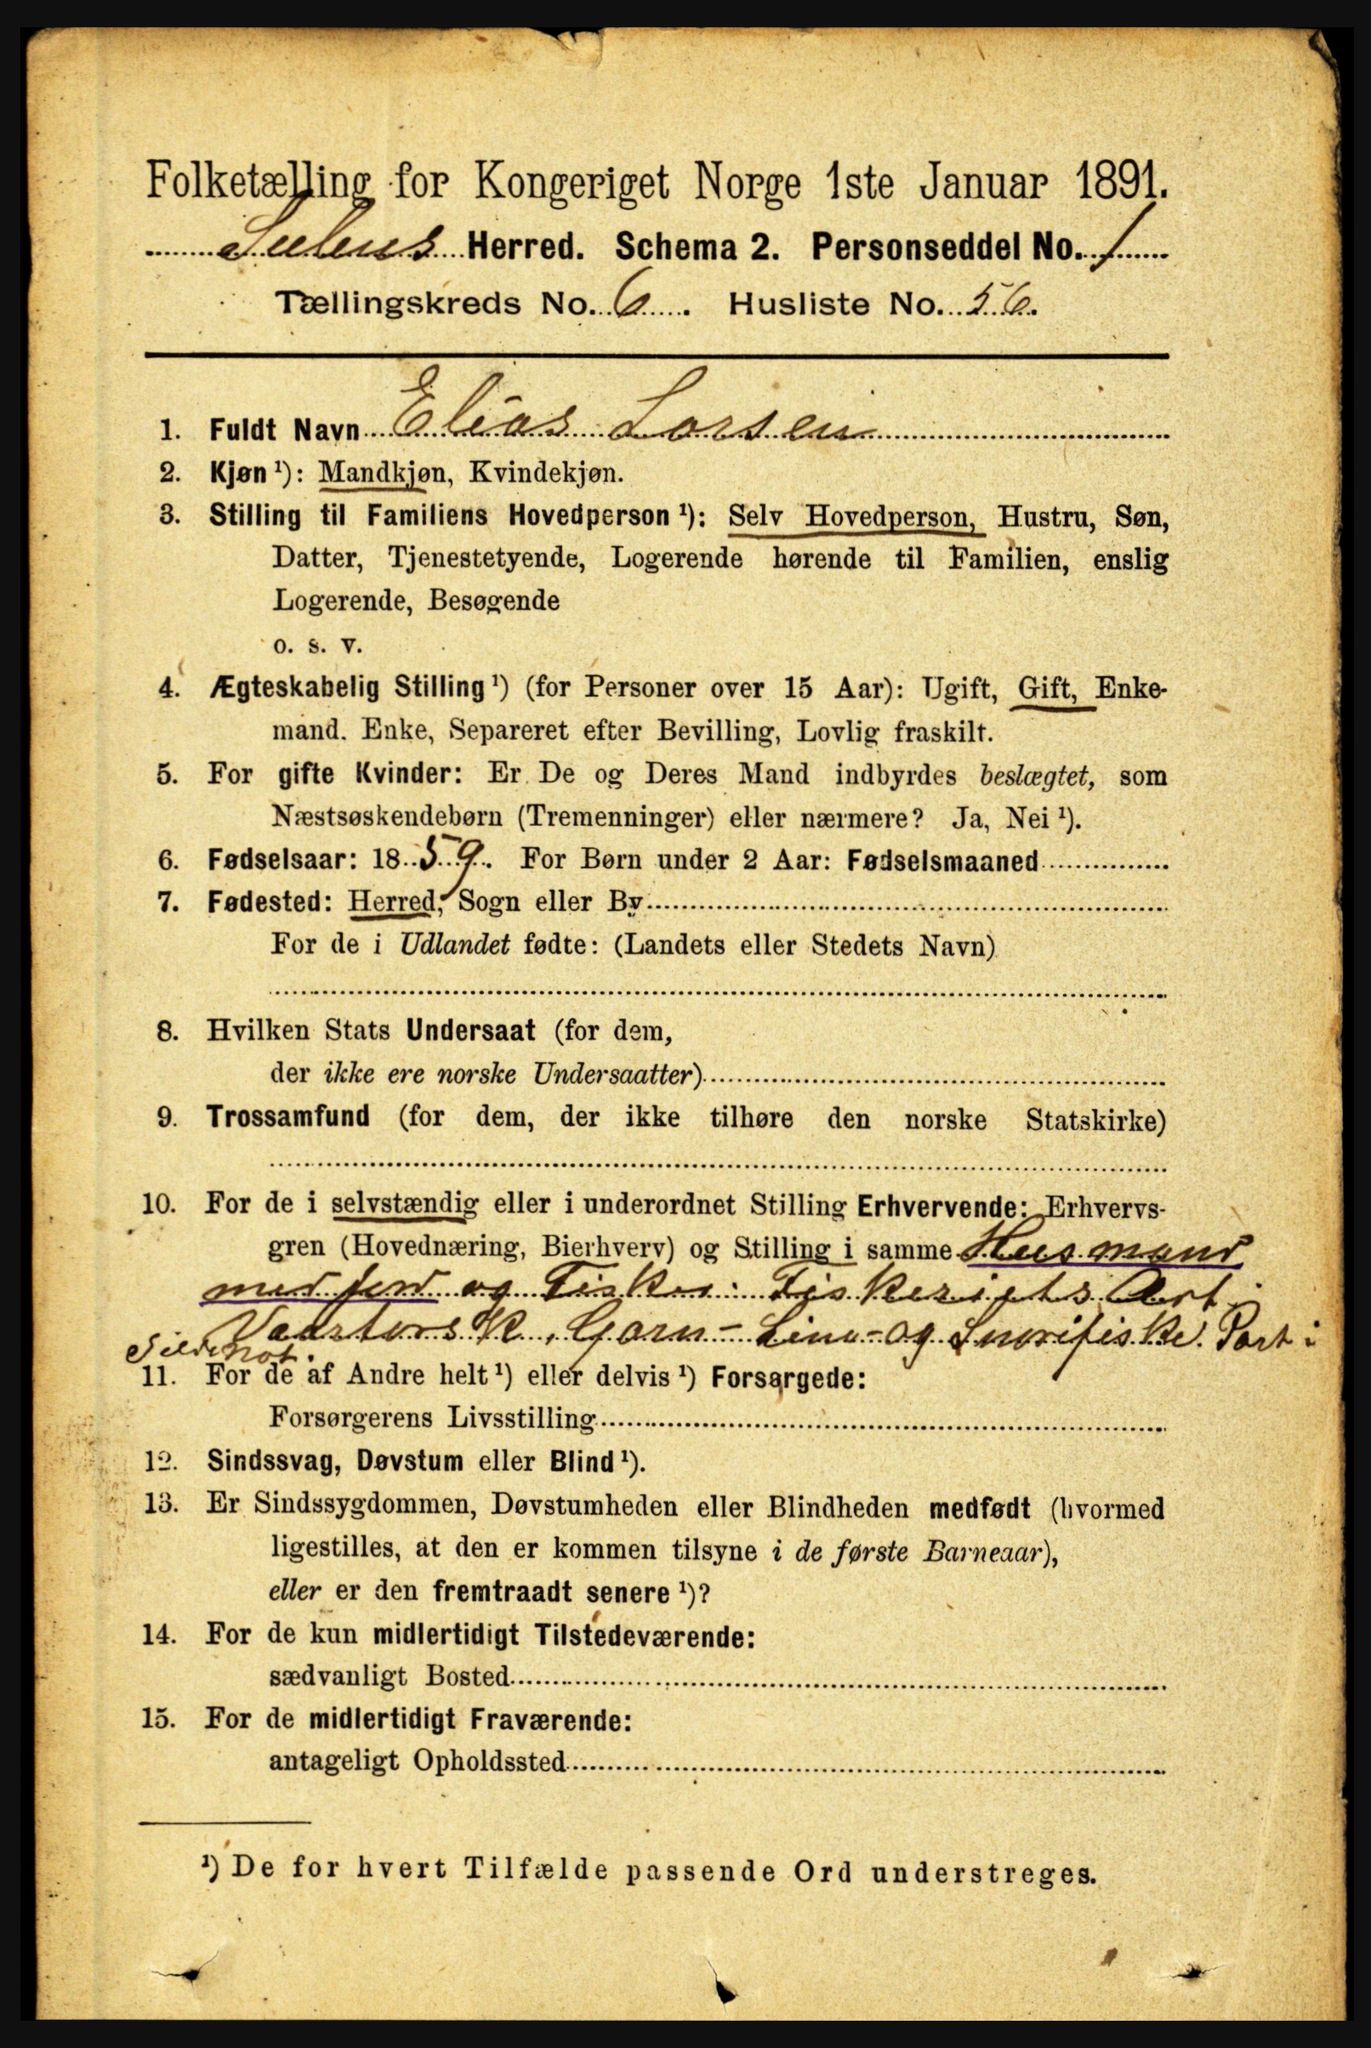 Folketælling for Kongeriget Norge 1ste Januar 1891.
Sulens Herred. Schema 2. Personseddel No. 1
Tællingskreds No. 6. Husliste No. 56.
1. Fuldt Navn Elias Larsen
2. Kjøn¹): Mandkjøn, Kvindekjøn.
3. Stilling til Familiens Hovedperson¹): Selv Hovedperson, Hustru, Søn,
Datter, Tjenestetyende, Logerende hørende til Familien, enslig
Logerende, Besøgende
o. s. v.
4. Ægteskabelig Stilling¹) (for Personer over 15 Aar): Ugift, Gift, Enke-
mand. Enke, Separeret efter Bevilling, Lovlig fraskilt.
5. For gifte Kvinder: Er De og Deres Mand indbyrdes beslægtet, som
Næstsøskendebørn (Tremenninger) eller nærmere? Ja, Nei¹).
6. Fødselsaar: 1859. For Børn under 2 Aar: Fødselsmaaned
7. Fødested: Herred, Sogn eller By
For de i Udlandet fødte: (Landets eller Stedets Navn)
8. Hvilken Stats Undersaat (for dem,
der ikke ere norske Undersaatter)
9. Trossamfund (for dem, der ikke tilhøre den norske Statskirke)
10. For de i selvstændig eller i underordnet Stilling Erhvervende: Erhvervs-
gren (Hovednæring, Bierhverv) og Stilling i samme Husmand
med jord og Fisker. Fiskeriets Art:
Vaartorsk, Garn- Line- og Snørefiske. Part i
Sildenot.
11. For de af Andre helt¹) eller delvis¹) Forsørgede:
Forsørgerens Livsstilling
12. Sindssvag, Døvstum eller Blind¹).
13. Er Sindssygdommen, Døvstumheden eller Blindheden medfødt (hvormed
ligestilles, at den er kommen tilsyne i de første Barneaar),
eller er den fremtraadt senere¹)?
14. For de kun midlertidigt Tilstedeværende:
sædvanligt Bosted
15. For de midlertidigt Fraværende:
antageligt Opholdssted
¹) De for hvert Tilfælde passende Ord understreges.